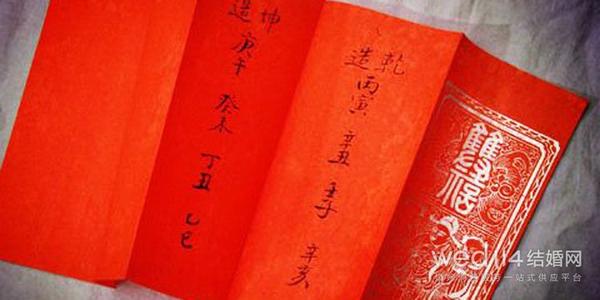 乾
造丙寅 辛丑 壬子 辛亥
坤
造庚午 癸未 丁丑 乙巳
wed114结婚网
一站式供应平台